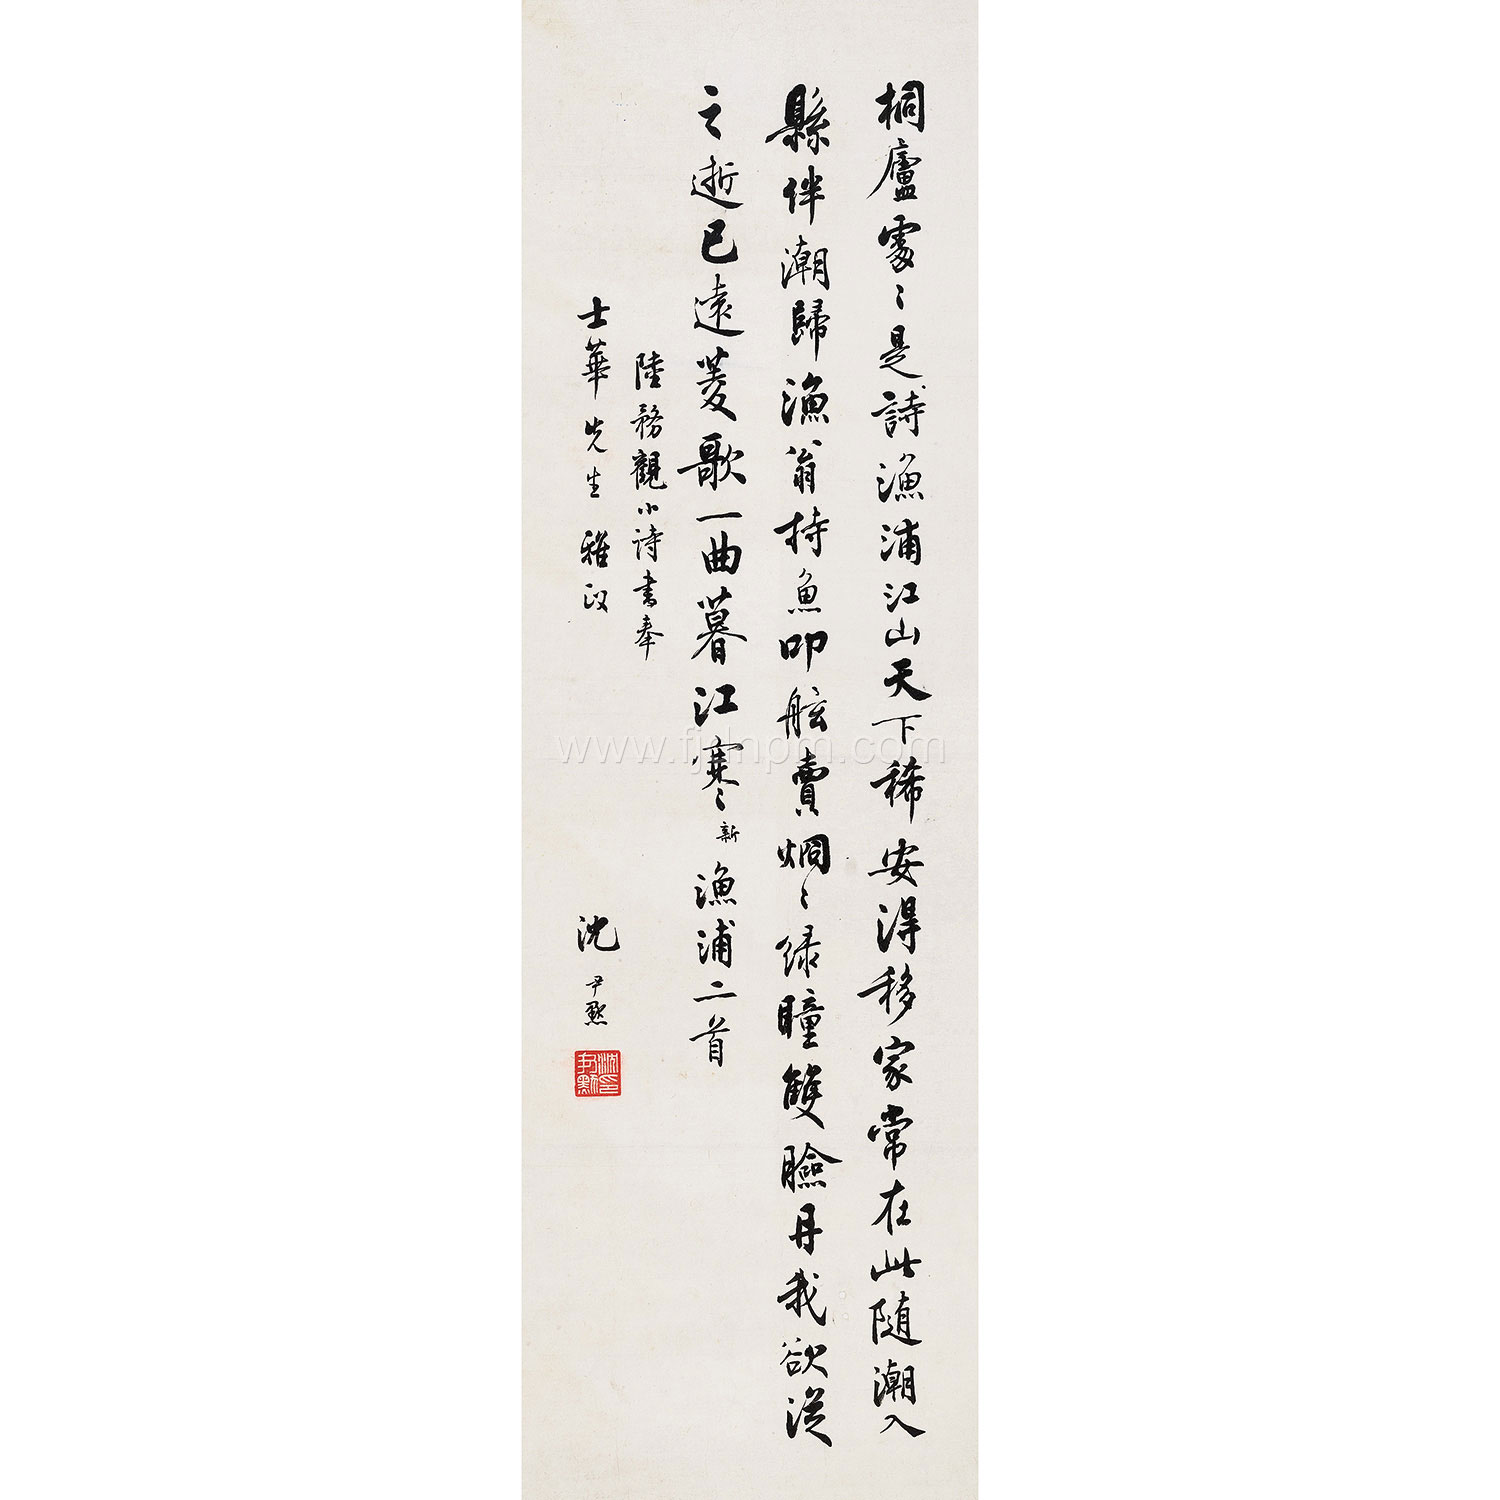 桐廬處〻是詩漁浦江山天下稀安得移家常在此随潮入
縣伴潮歸漁翁持魚叩舷賣炯〻绿瞳雙臉丹我欲従
之逝已遠菱歌一曲暮江寒〻新漁浦二首
陸務觀小诗書奉
士華先生雅政
沈尹默
沈尹默印
www.fjdnpm.com